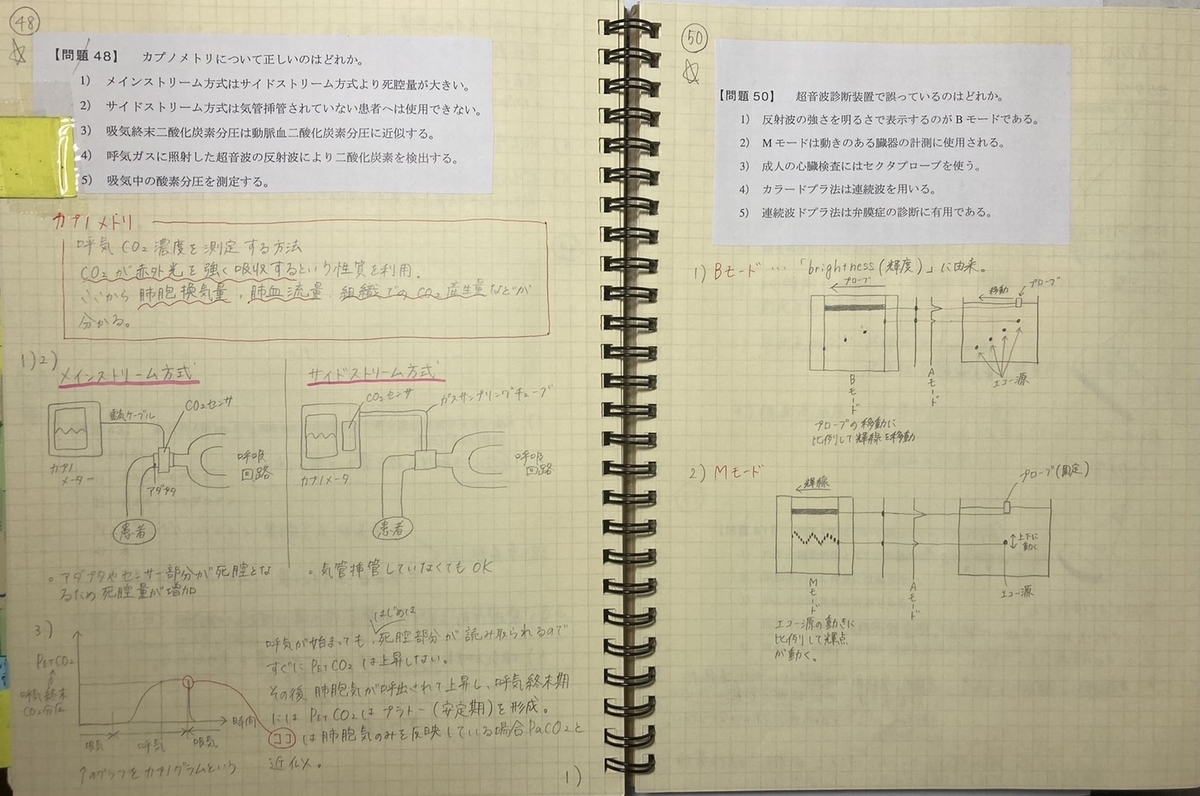 48
【問題 48】 カプノメトリについて正しいのはどれか。
1) メインストリーム方式はサイドストリーム方式より死腔量が大きい。
2) サイドストリーム方式は気管挿管されていない患者へは使用できない。
3) 吸気終末二酸化炭素分圧は動脈血二酸化炭素分圧に近似する。
4) 呼気ガスに照射した超音波の反射波により二酸化炭素を検出する。
5) 吸気中の酸素分圧を測定する。
カプノメトリ
呼気CO₂濃度を測定する方法
CO₂が赤外光を強く吸収するという性質を利用.
ここから肺胞換気量,肺血流量,組織でのCO₂産生量などが
分かる。
1)2)
メインストリーム方式
電気ケーブル
CO₂センサ
カプノ
メーター
アダプタ
呼吸
回路
患者
。アダプタやセンサー部分が死腔とな
るため死腔量が増加
サイドストリーム方式
CO₂センサ
ガスサンプリングチューブ
カプノメータ
呼吸
回路
患者
。気管挿管していなくてもOK
3)
PETCO₂
呼気終末
CO₂分圧
時間
吸気
呼気
吸気
↑のグラフをカプノグラムという
はじめは
呼気が始まっても,死腔部分が読み取られるので
すぐにPETCO₂は上昇しない。
その後,肺胞気が呼出されて上昇し,呼気終末期
にはPETCO₂はプラトー(安定期)を形成。
ココは肺胞気のみを反映している場合PaCO₂と
近似。
1)
50
【問題 50】 超音波診断装置で誤っているのはどれか。
1) 反射波の強さを明るさで表示するのが B モードである。
2) M モードは動きのある臓器の計測に使用される。
3) 成人の心臓検査にはセクタプローブを使う。
4) カラードプラ法は連続波を用いる。
5) 連続波ドプラ法は弁膜症の診断に有用である。
1) Bモード…「brightness(輝度)」に由来。
プローブ
移動
プローブ
Bモード
Aモード
エコー源
プローブの移動に
比例して輝線を移動
2) Mモード
輝線
プローブ(固定)
上下に
動く
Mモード
Aモード
エコー源
エコー源の動きに
比例して輝点
が動く。